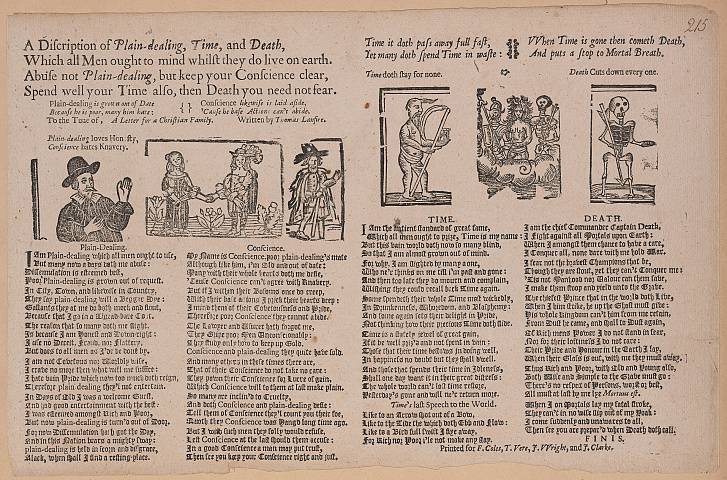 215
A Discription of Plain-dealing, Time, and Death,
Which all Men ought to mind whilst they do live on earth.
Abuse not Plain-dealing, but keep your Conscience clear,
Spend well your Time also, then Death you need not fear.
Plain-dealing is grown out of Date
Because he is poor, many him hate:
Conscience likewise is laid aside,
'Cause he base Actions can't abide.
To the Tune of, A Letter for a Christian Family. Written by Thomas Lanfire.
Plain-dealing loves Honesty,
Conscience hates Knavery.
Plain-Dealing.
I Am Plain-dealing which all men ought to use,
But many now a days doth me abuse:
Dissimulation is esteemed best,
Poor Plain-dealing is grown out of request.
In City, Town, and likewise in Country,
They say plain-dealing will a Beggar Dye:
Gallants they at me do both mock and flout,
Because that I go in a Thread-bare Coat.
The reason that so many doth me slight,
Is because I am Honest and Downright:
I use no Deceit, Fraud, nor Flattery,
But does to all men as I'de be done by.
I am not Covetous nor Worldly wise,
I crave no more then what will me suffice:
I hate vain Pride which now too much doth reign,
Therefore plain-dealing they'l not entertain.
In Days of Old I was a welcome Guest,
And had good entertainment with the best:
I was esteemed amongst Rich and Poor,
But now plain-dealing is turn'd out of Door.
For now Dissimulation hath got the Day,
And in this Nation bears a mighty sway:
plain-dealing is held in scorn and disgrace,
Alack, when shall I find a resting-place.
Conscience.
My Name is Conscience, poor plain-dealing's mate
Although like him, I'm Old and out of date:
Many with their whole hearts doth me despise,
'Cause Conscience can't agree with Knavery.
But if I within their Bosoms once do creep,
With their bad actions I prick their hearts deep:
I mind them of their Covetousness and Pride,
Therefore poor Conscience they cannot abide.
The Lawyer and Usurer hath forgot me,
They Gripe poor Men Unconscionably:
They study only how to keep up Gold,
Conscience and plain-dealing they quite have sold.
And many others in these times there are,
That of their Conscience do not take no care:
They pawn their Conscience for Lucre of gain,
Which Conscience will to them at last make plain.
So many are inclin'd to Cruelty,
And doth Conscience and plain-dealing defie:
Tell them of Conscience they'l count you their foe,
Quoth they Conscience was Hang'd long time ago.
But I wish such men they folly would refuse,
Lest Conscience at the last should them accuse:
In a good Conscience a man may put trust,
Then see you keep your Conscience right and just.
Time it doth pass away full fast,
Yet many doth spend Time in waste:
When Time is gone then cometh Death,
And puts a stop to Mortal Breath.
Time doth stay for none.
Death Cuts down every one.
TIME.
I Am the antient standard of great fame,
Which all men ought to prize, Time is my name:
But this vain world doth now so many blind,
So that I am almost grown out of mind.
For why, I am slighted by many a one,
Who ne'r thinks on me till I'm past and gone:
And then too late they do mourn and complain,
Wishing they could recall back Time again.
Some spendeth their whole Time most wickedly,
In Drunkenness, Whoredom, and Blasphemy:
And some again sets their delight in Pride,
Not thinking how their precious Time doth slide.
Time is a stately Jewel of great gain,
If it be well priz'd and not spent in vain:
Those that their Time bestows in doing well,
In happiness no doubt but they shall dwell.
And those that spends their time in Idleness,
Shall one day want it in their great distress:
The whole world can't lost time restore,
Yesterday's gone and will ne'r return more.
Time's last Speech to the World.
Like to an Arrow shot out of a Bow,
Like to the Tide the which doth Ebb and Flow:
Like to a Bird full swift I flye away,
For Rich nor Poor I'le not make any stay.
DEATH.
I am the chief Commander Captain Death,
I Fight against all Mortals upon Earth:
When I amongst them chance to have a care,
I Conquer all, none dare with me hold War.
I fear not the bravest Champions that be,
Though they are stout, yet they can't Conquer me:
'Tis not Manhood nor Valour can them save,
I make them stoop and yield unto the Grave.
The chiefest Prince that in the world doth live,
When I him strike, he up the Ghost must give:
His whole Kingdom can't him from me retain,
From Dust he came, and shall to Dust again.
Of Rich mens Power I do not stand in fear,
Nor for their loftiness I do not care:
Their Pride and Honour in the Earth I lay,
When their Glass is out, with me they must away.
Thus Rich and Poor, with Old and Young also,
Both Wise and Simple to the Grave must go:
There's no respect of Persons, worst or best,
All must at last by me lye Mortuus est.
When I on Mortals lay my fatal stroke,
They can't in no wise slip out of my Yoak:
I come suddenly and unawares to all,
Then see you are prepar'd when Death doth call.
FINIS.
Printed for F. Coles, T. Vere, J. Wright, and J. Clarke.